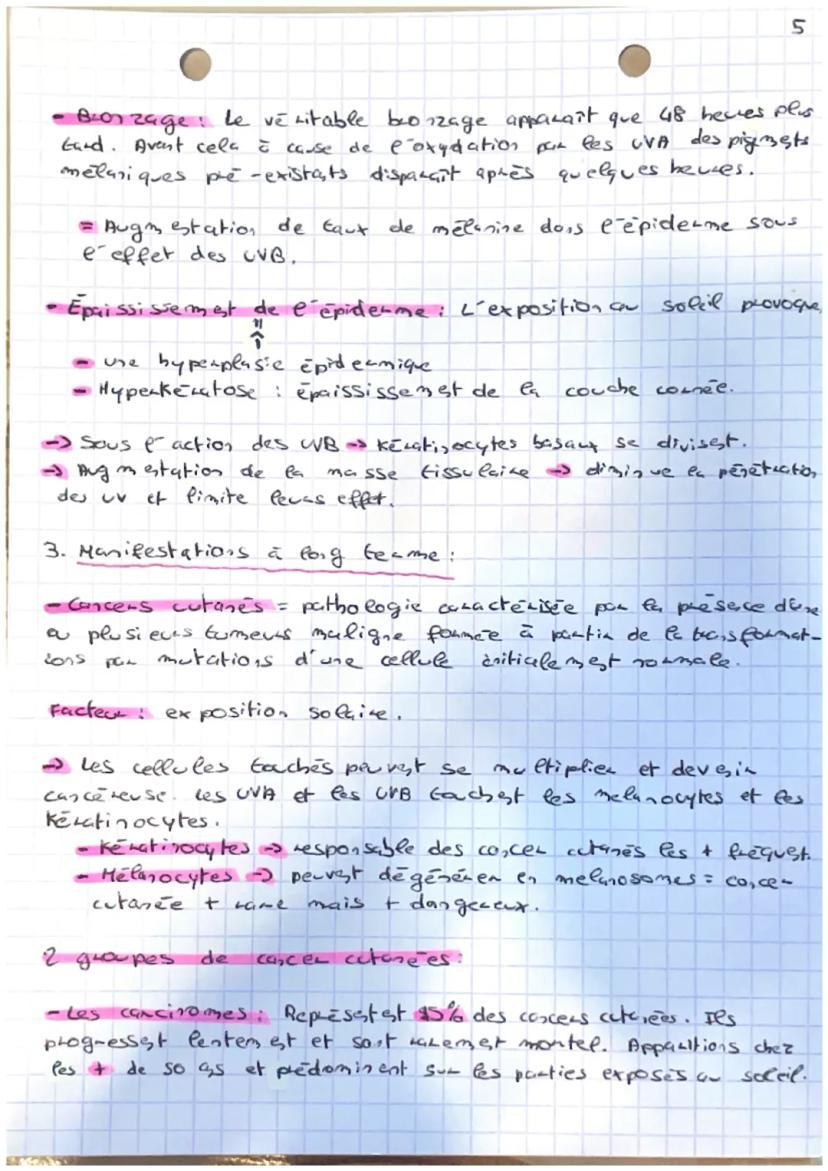 5
- Bronzage : Le véritable bronzage apparaît que 48 heures plus
tard. Avant cela à cause de l'oxydation par les UVA des pigments
mélaniques pré-existants disparaît après quelques heures.
= Augmentation de taux de mélanine dans l'épiderme sous
l'effet des UVB.
- Épaississement de l'épiderme : L'exposition au soleil provoque,
- une hyperplasie épidermique
- Hyperkératose : épaississement de la couche cornée.
-> Sous l'action des UVB -> Kératinocytes basaux se divisent.
-> Augmentation de la masse tissulaire -> diminue la pénétration
des UV et limite leurs effet.
3. Manifestations à long terme :
- Cancers cutanés = pathologie caractérisée par la présence d'une
ou plusieurs tumeurs maligne formée à partir de la transformat-
ions par mutations d'une cellule initialement normale.
Facteur : exposition solaire.
-> Les cellules touchés peuvent se multiplier et devenir
cancéreuse. Les UVA et les UVB touchent les melanocytes et les
Kératinocytes.
- Kératinocytes -> responsable des cancer cutanés les + fréquent.
- Mélanocytes -> peuvent dégénérer en melanosomes = cancer
cutanée + rare mais + dangereux.
2 groupes de cancer cutanées :
- Les carcinomes : Représentent % des cancers cutanées. Ils
progressent lentement et sont rarement mortel. Apparitions chez
les + de 50 ans et prédominent sur les parties exposés au soleil.